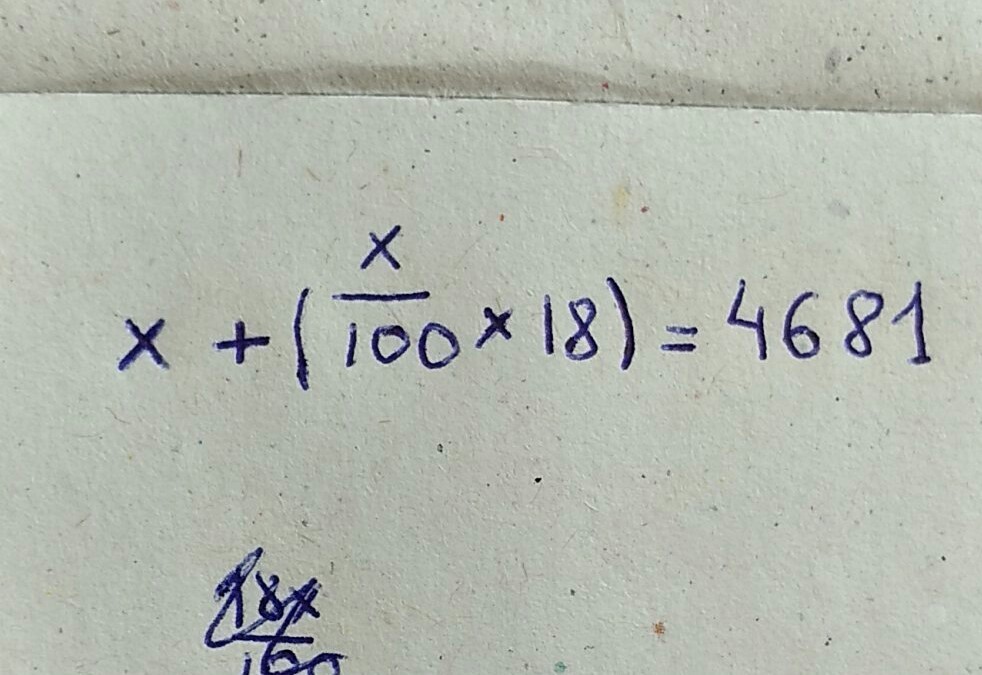 x + (x/100 × 18) = 4681
18x/100